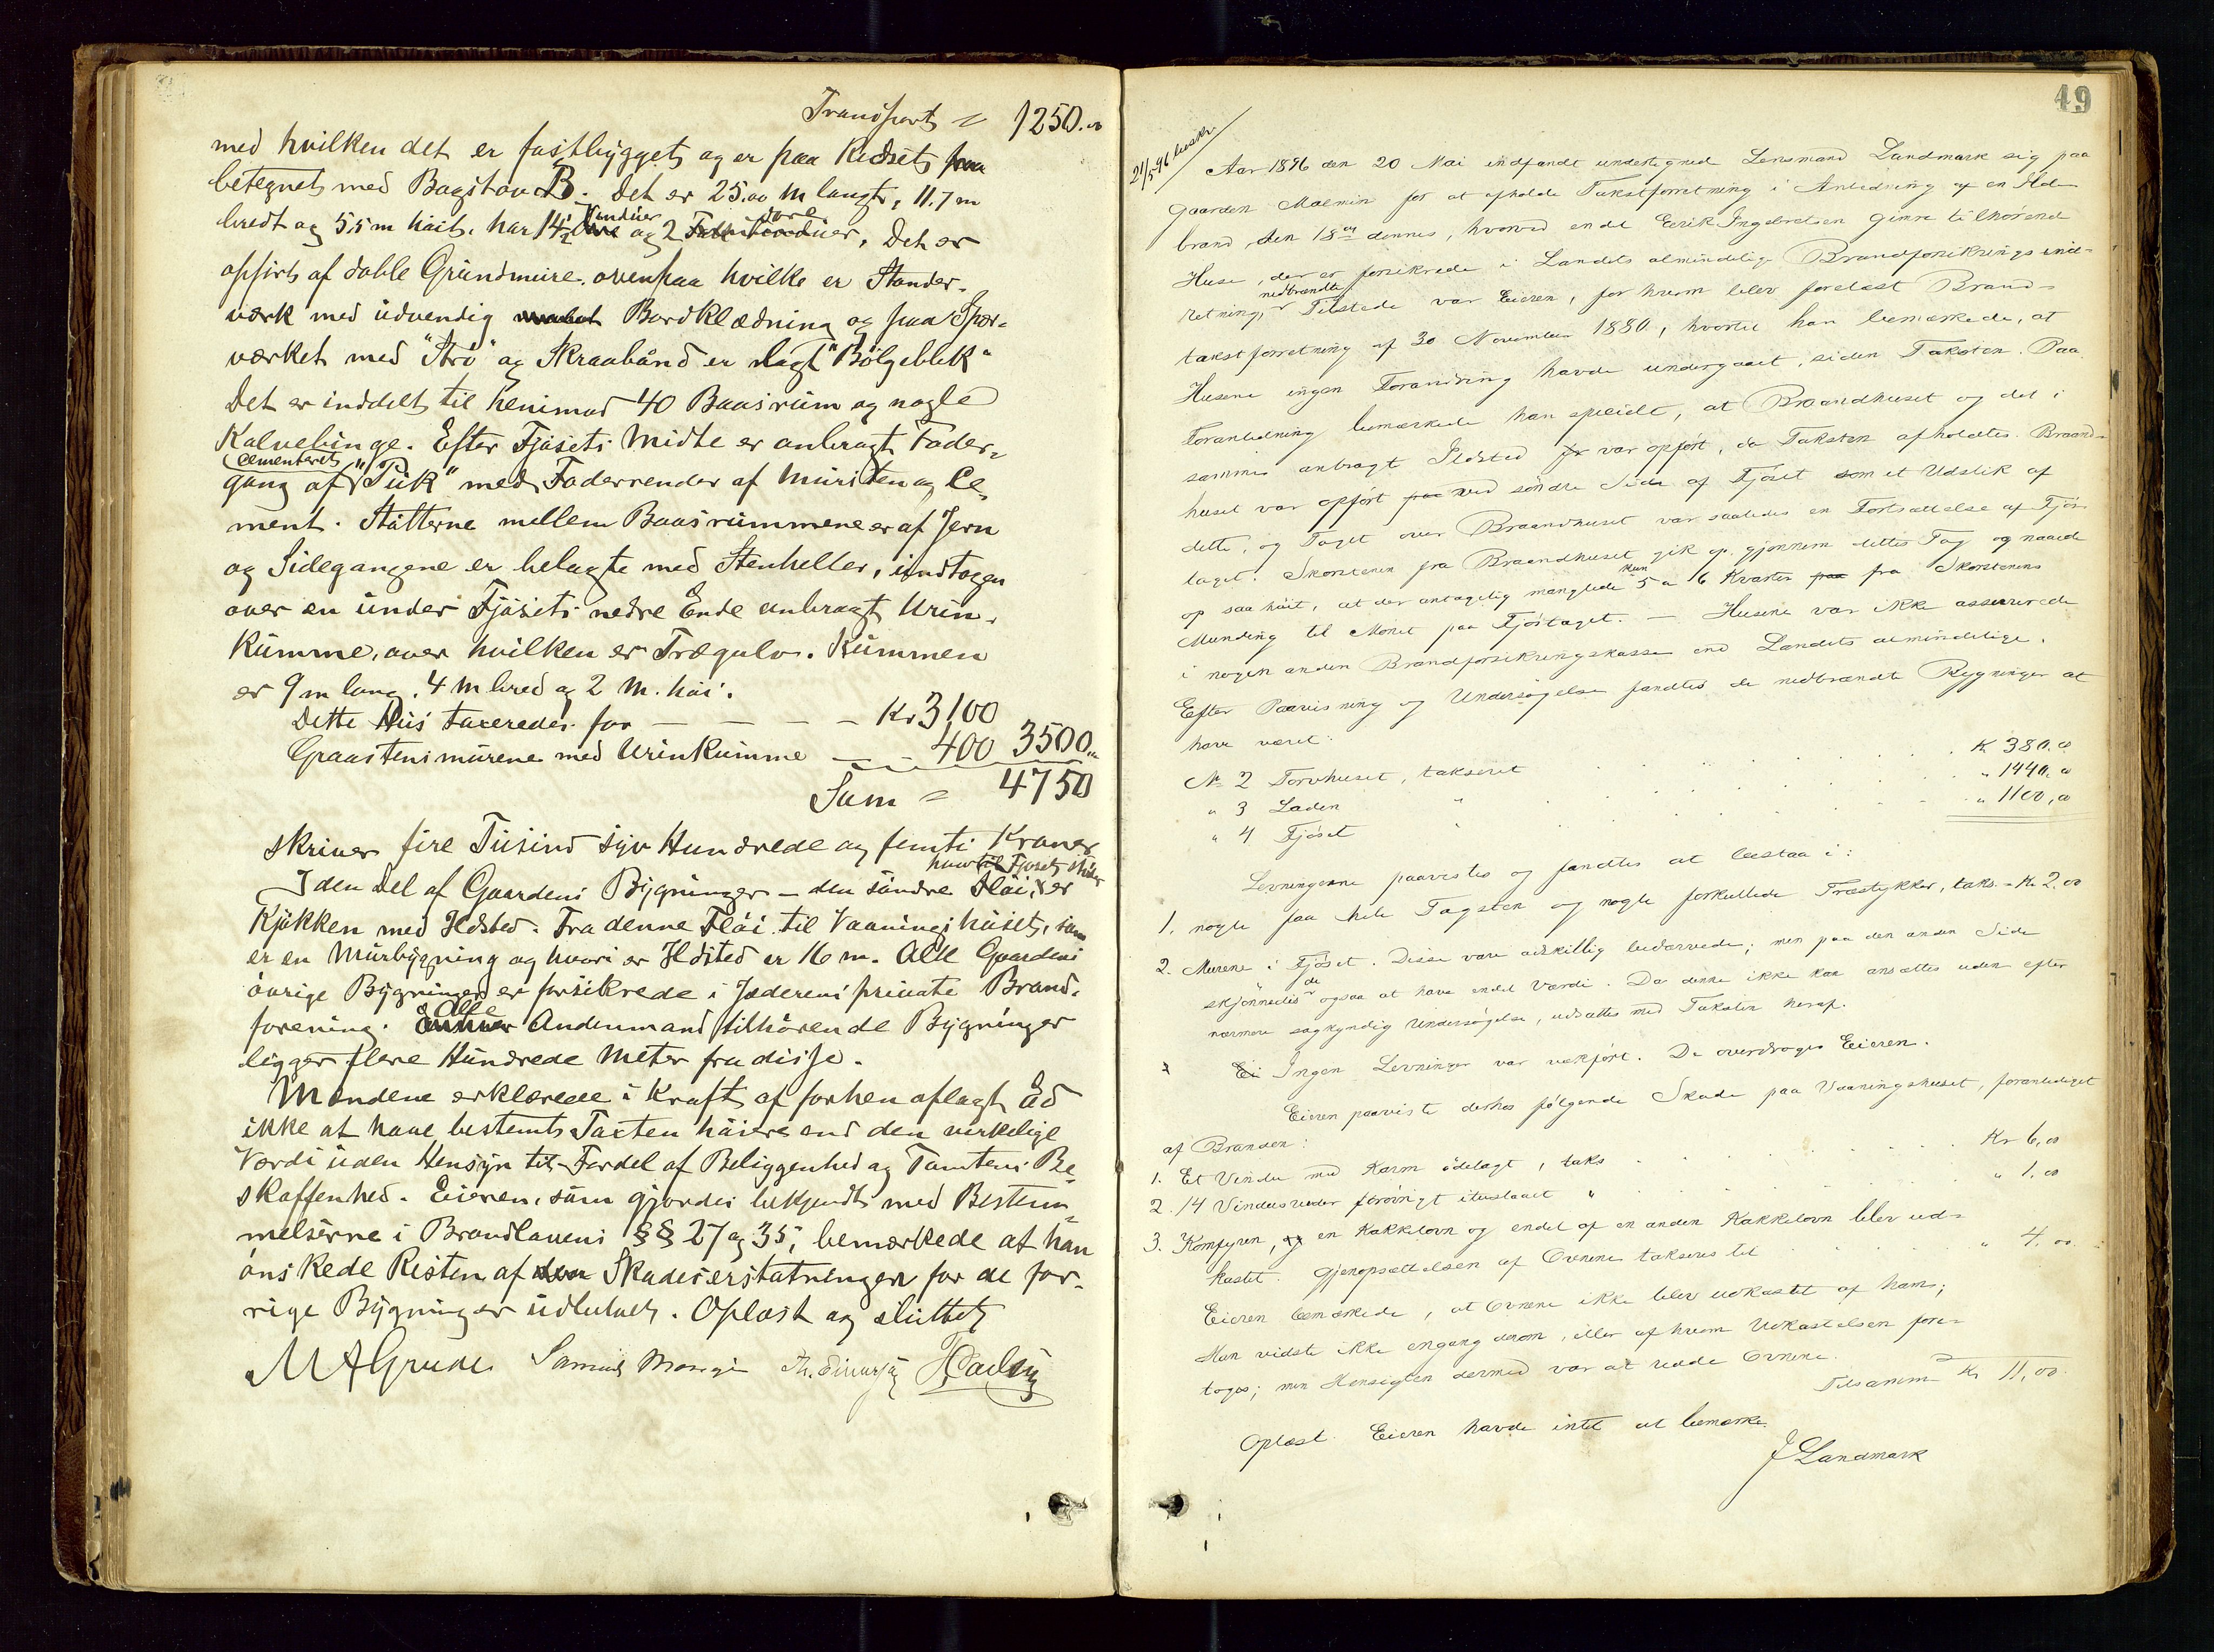 Transport = 1250.00
med hvilken det er fastbygget og er paa Ridset
betegnet med Bogstav B. Det er 25.00 m langt, 11.7 m
bredt og 5,5 m høit, har 14 ½ Vinduer og 2 Døre. Det er
opført af doble Grundmure ovenpaa hvilke er Stander-
værk med udvendig Bordklædning og paa Spær-
værket med "Strø" og Skraabånd er lagt "Bølgeblik"
Det er inddelt til henimod 40 Baasrum og nogle
Kalvebinge. Efter Fjøsets Midte er anbragt Foder-
gang af cementeret "Puk" med Foderrender af Mursten og Ce-
ment. Støtterne mellem Baasrummene er af Jern
og Sidegangene er belagte med Stenheller, indtagen
over en under Fjøsets nedre Ende anbragt Urin-
kumme, over hvilken er Trægulv. Kummen
er 9 m lang, 4 m bred og 2 m. høi.
Dette Hus taxeredes for — — — — Kr 3100
Graastensmurene med Urinkumme — 400 3500.00
Sum = 4750
skriver fire Tusind syv Hundrede og femti Kroner
I den Del af Gaardens Bygninger – den søndre Fløi, hvortil Fjøset støder er
Kjøkken med Ildsted. Fra denne Fløi til Vaaningshuset, som
er en Murbygning og hvori er Ildsted er 16 m. Alle Gaardens
øvrige Bygninger er forsikrede i Jæderens private Brand-
forening. Alle Andenmand tilhørende Bygninger
ligger flere Hundrede Meter fra disse.
Mændene erklærede i Kraft af forhen aflagt Ed
ikke at have bestemt Taxten høiere end den virkelige
Værdi uden Hensyn til Fordel af Beliggenhed og Tomtens Be-
skaffenhed. Eieren, som gjordes bekjendt med Bestem-
melserne i Brandlovens §§ 27 og 35, bemærkede at han
ønskede Resten af Skadeserstatningen for de for-
rige Bygninger udbetalt. Oplæst og sluttet
M A Grude Samuel
49
21/5-96 beskr.
Aar 1896 den 20 Mai indfandt undertegnede Lensmand Landmark sig paa
Gaarden Malmin for at afholde Takstforretning i Anledning af en Ilde-
brand den 18de dennes, hvorved endel Eerik Ingebretsen Gimre tilhørende
Huse, der er forsikrede i Landets almindelige Brandforsikringsind-
retning, nedbrændte. Tilstede var Eieren, for hvem blev forelæst Brand-
takstforretning af 30 November 1880, hvortil han bemærkede, at
Husene ingen Forandring havde undergaaet, siden Taksten. Paa
Foranledning bemærkede han specielt, at Braandhuset og det i
samme anbragt Ildsted var opført, da Taksten afholdtes. Braand-
huset var opført ved søndre Side af Fjøset som et Udstik af
dette, og Taget over Braandhuset var saaledes en Fortsættelse af Fjøs-
taget. Skorstenen fra Braandhuset gik op gjennem dettes Tag og naaede
op saa høit, at der antagelig manglede kun 5 a 6 Kvarter fra Skorstenens
Munding til Mønet paa Fjøstaget. — Husene var ikke assurerede
i nogen anden Brandforsikringskasse end Landets almindelige.
Efter Paavisning og Undersøgelse fandtes de nedbrændte Bygninger at
have været:
№ 2 Torvhuset, takseret . . . . . K 380.00
" 3 Laden " . . . . . " 1440,00
" 4 Fjøset " . . . . . " 1100,00
Levningerne paavistes og fandtes at bestaa i:
1. nogle faa hele Tagsten og nogle forkullede Træstykker, taks. = Kr 2.00
2. Murene i Fjøset. Disse vare adskillig bedærvede; men paa den anden Side
skjønnedes de ogsaa at have endel Værdi. Da denne ikke kan ansættes uden efter
nærmere sagkyndig Undersøgelse, udsattes med Taksten heraf.
Ingen Levninger var vækført. De overdroges Eieren.
Eieren paaviste derhos følgende Skade paa Vaaningshuset, foranlediget
af Branden:
1. Et Vindu med Karm ødelagt, taks . . . . . Kr 6,00
2. 14 Vinduesruder forøvrigt ituslaaet " . . . . . " 1,00
3. Komfyren, en Kakkelovn og endel af en anden Kakkelovn blev ud-
kastet. Gjenopsættelsen af Ovnene takseres til . . . " 4.00
Eieren bemærkede, at Ovnene ikke blev udkastet af ham;
Han vidste ikke engang derom, eller af hvem Udkastelsen fore-
toges; men Hensigten dermed var at redde Ovnene.
Tilsammen Kr 11,00
Oplæst. Eieren havde intet at bemærke.
J Landmark